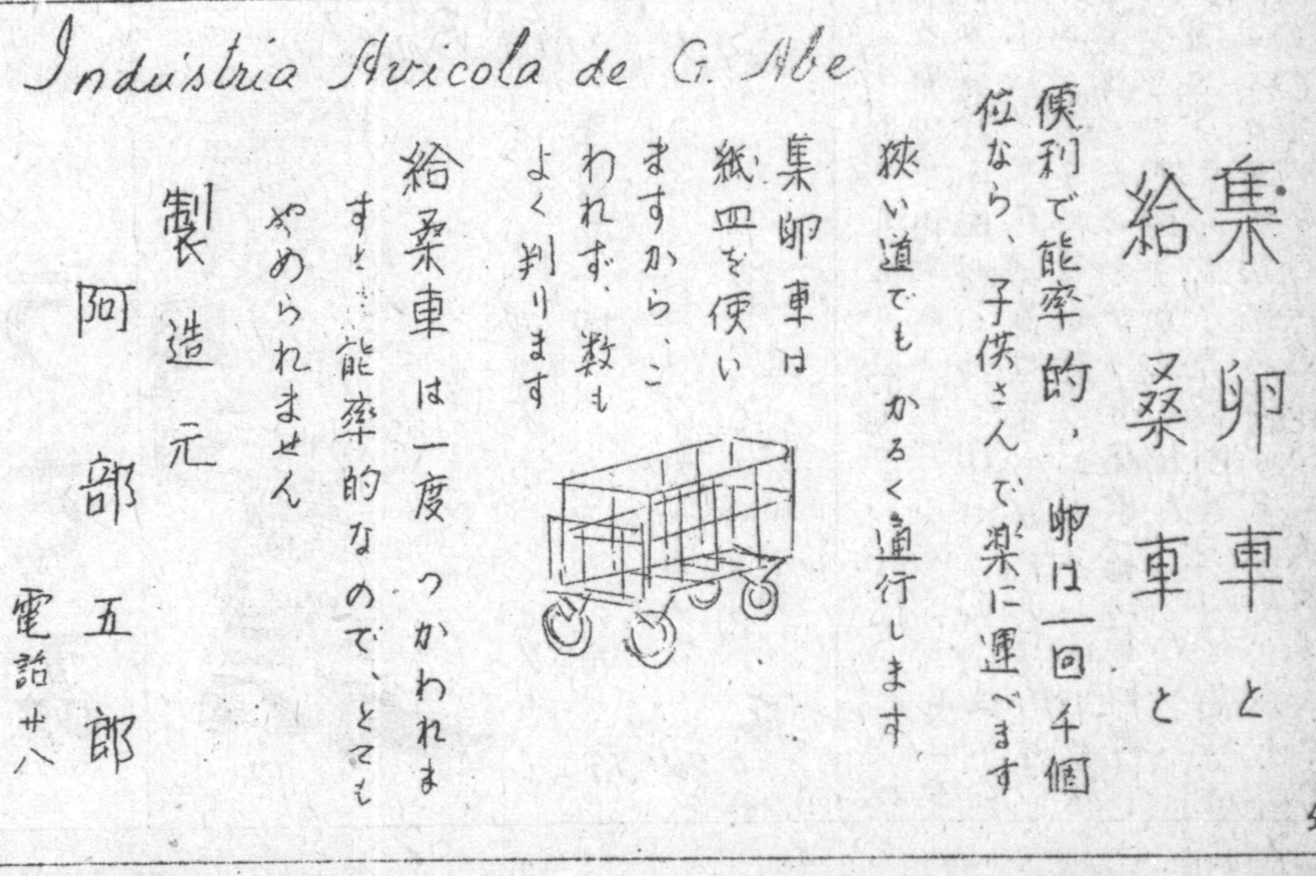 Indústria Avicola de G. Abe
集卵車と
給桑車と
便利で能率的、卵は一回千個
位なら、子供さんで楽に運べます
狭い道でもかるく通行します
集卵車は
紙皿を使い
ますから、こ
われず、数も
よく判ります
給桑車は一度つかわれま
すと……能率的なので、とても
やめられません
製造元
阿部五郎
電話廿八